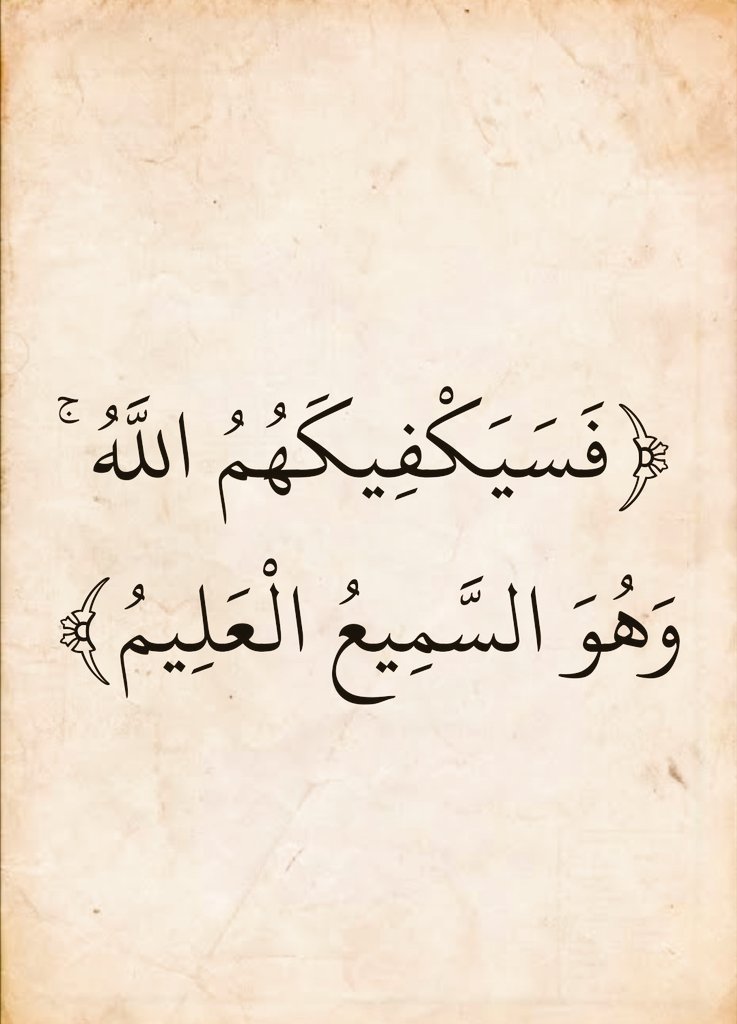 ﴿فَسَيَكْفِيكَهُمُ اللَّهُ ۚ
وَهُوَ السَّمِيعُ الْعَلِيمُ﴾